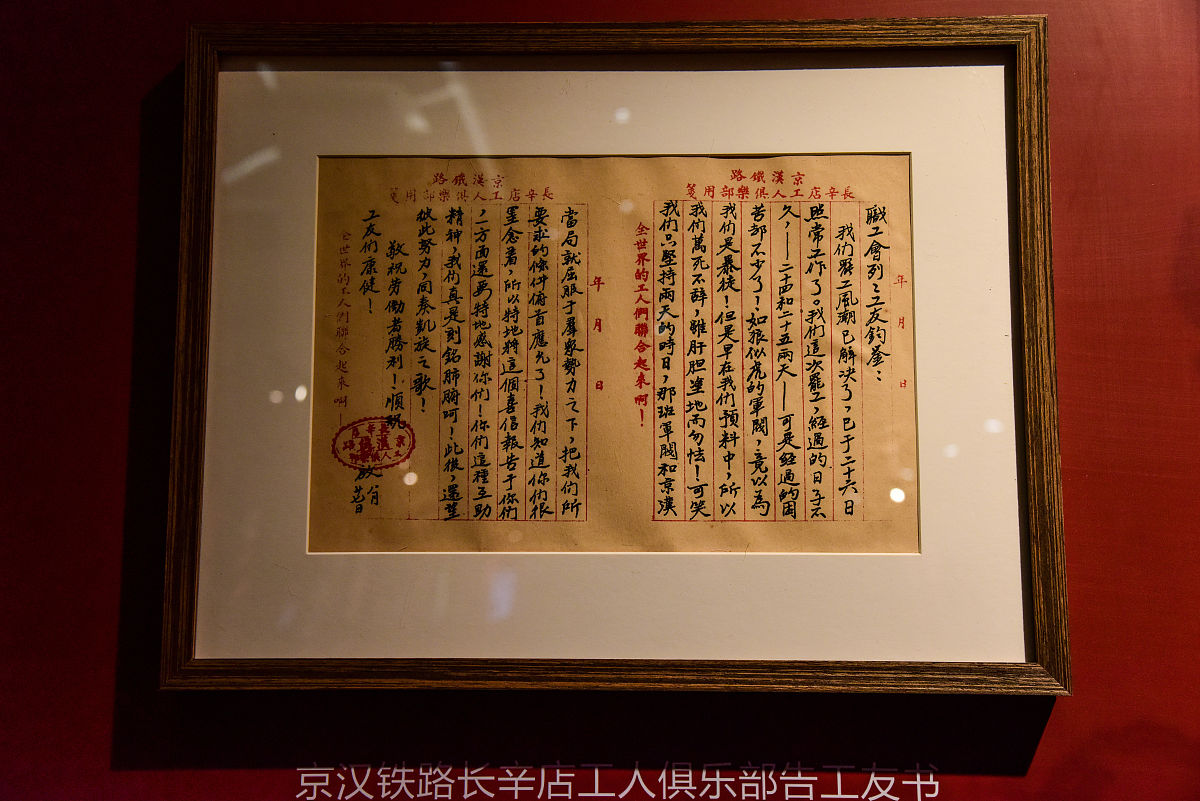 京漢鐵路
長辛店工人俱樂部用箋
年 月 日
職工會列々工友鈞鑒：
我们罷工風潮已解决了，已于二十六日
照常工作了。我们這次罷工，經過的日子不
久，——二十四和二十五兩天——可是經過的困
苦都不少了！如狼似虎的軍閥，竟以為
我们是暴徒！但是早在我们預料中，所以
我们萬死不辞，雖肝胆塗地而勿怯！可笑
我们只堅持兩天的時日，那班軍閥和京漢
全世界的工人們聯合起來啊！
京漢鐵路
長辛店工人俱樂部用箋
年 月 日
當局就屈服于羣衆勢力之下，把我们所
要求的條件俯首應允了！我们知道你们很
墨念着，所以特地將這個喜信報告于你们
，一方面還要特地感謝你们！你们這種互助
精神，我们真是刻銘肺腑呵！此後，還望
彼此努力，同奏凱旋之歌！
敬祝劳働者勝利！順祝
工友们康健！
啟
全世界的工人們聯合起來啊！
京漢鐵路
長辛店
工人俱樂部
京汉铁路长辛店工人俱乐部告工友书